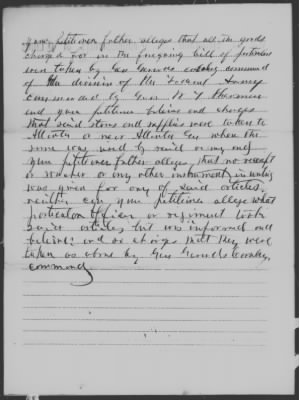 your petitioner father alleges that all the goods
charged for in the foregoing bill of particulars
were taken by Gen Gerrards cavalry command
of the division of the Federal Army
commanded by Gen W T Sherman
and your petitioner believes and charges
that said stores and supplies were taken to
Atlanta or near Atlanta Geo when the
same was used by said army and
your petitioner father alleges, that no receipt
or voucher or any other instrument in writing
was given for any of said articles
neither can your petitioner allege what
particular officer or regiment took
said articles, but was informed and
believes and so charges that they were
taken as above by Gen Gerrards Cavalry
command